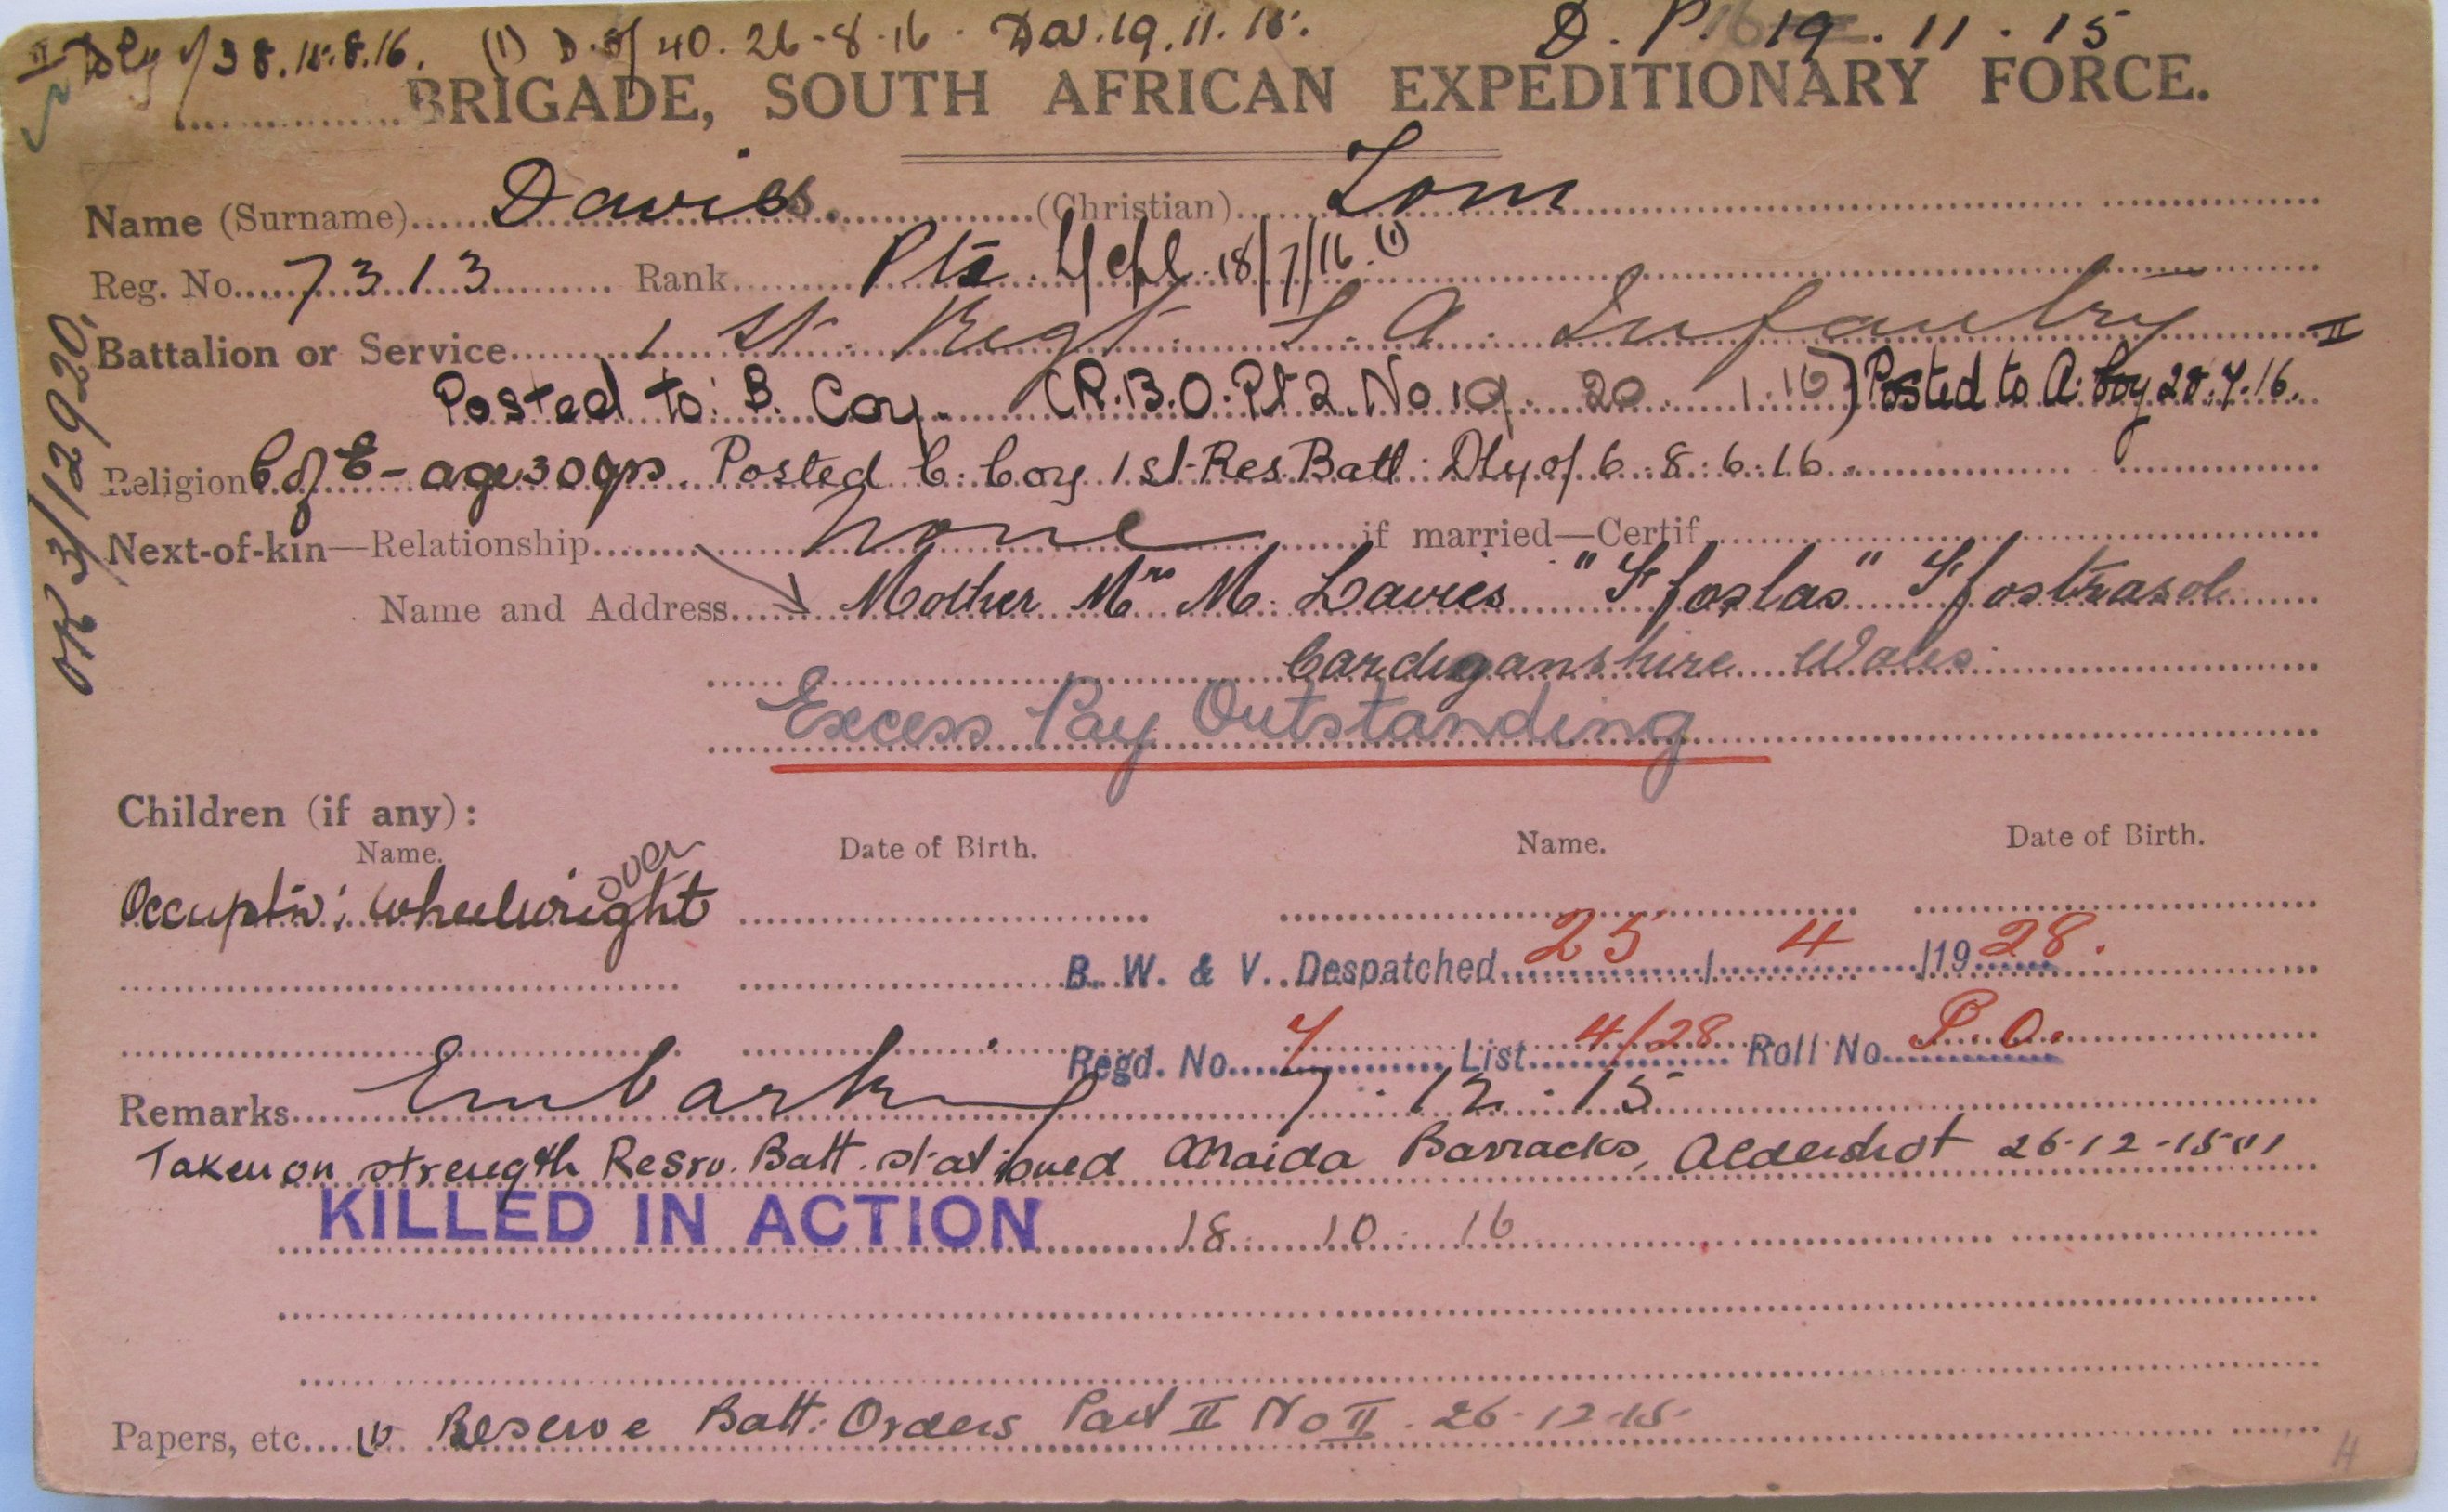 II Dly of 38. 15.8.16. (1) D. of 40. 26-8-16. Da. 19.11.15. D. P. 19.11.15
BRIGADE, SOUTH AFRICAN EXPEDITIONARY FORCE.
Name (Surname) Davies. (Christian) Tom
Reg. No. 7313 Rank Pte. L/Cpl. 18/7/16. (1)
Battalion or Service 1st. Regt. S. A. Infantry II
Posted to: B. Coy. (R.B.O. Pt 2. No 19. 20. 1.16) Posted to A. Coy 28.7.16.
Religion C of E - age 30 yrs. Posted C. Coy 1st Res. Batt: Dly of 6. 8:6:16.
Next-of-kin—Relationship none if married—Certif.
Name and Address Mother Mrs M. Davies "Ffoslas" Ffostrasol
Cardiganshire Wales
Excess Pay Outstanding
OR 3/12920.
Children (if any):
Name. Date of Birth. Name. Date of Birth.
over
Occuptn: Wheelwright
B. W. & V. Despatched 25 / 4 /1928.
Regd. No. 7 List 4/28 Roll No. P.O.
Remarks Embarked 7.12.15
Taken on strength Resrv. Batt. stationed Maida Barracks, Aldershot 26-12-15 (1)
KILLED IN ACTION 18 10 16
Papers, etc. (1) Reserve Batt: Orders Part II No II. 26-12-15-
H